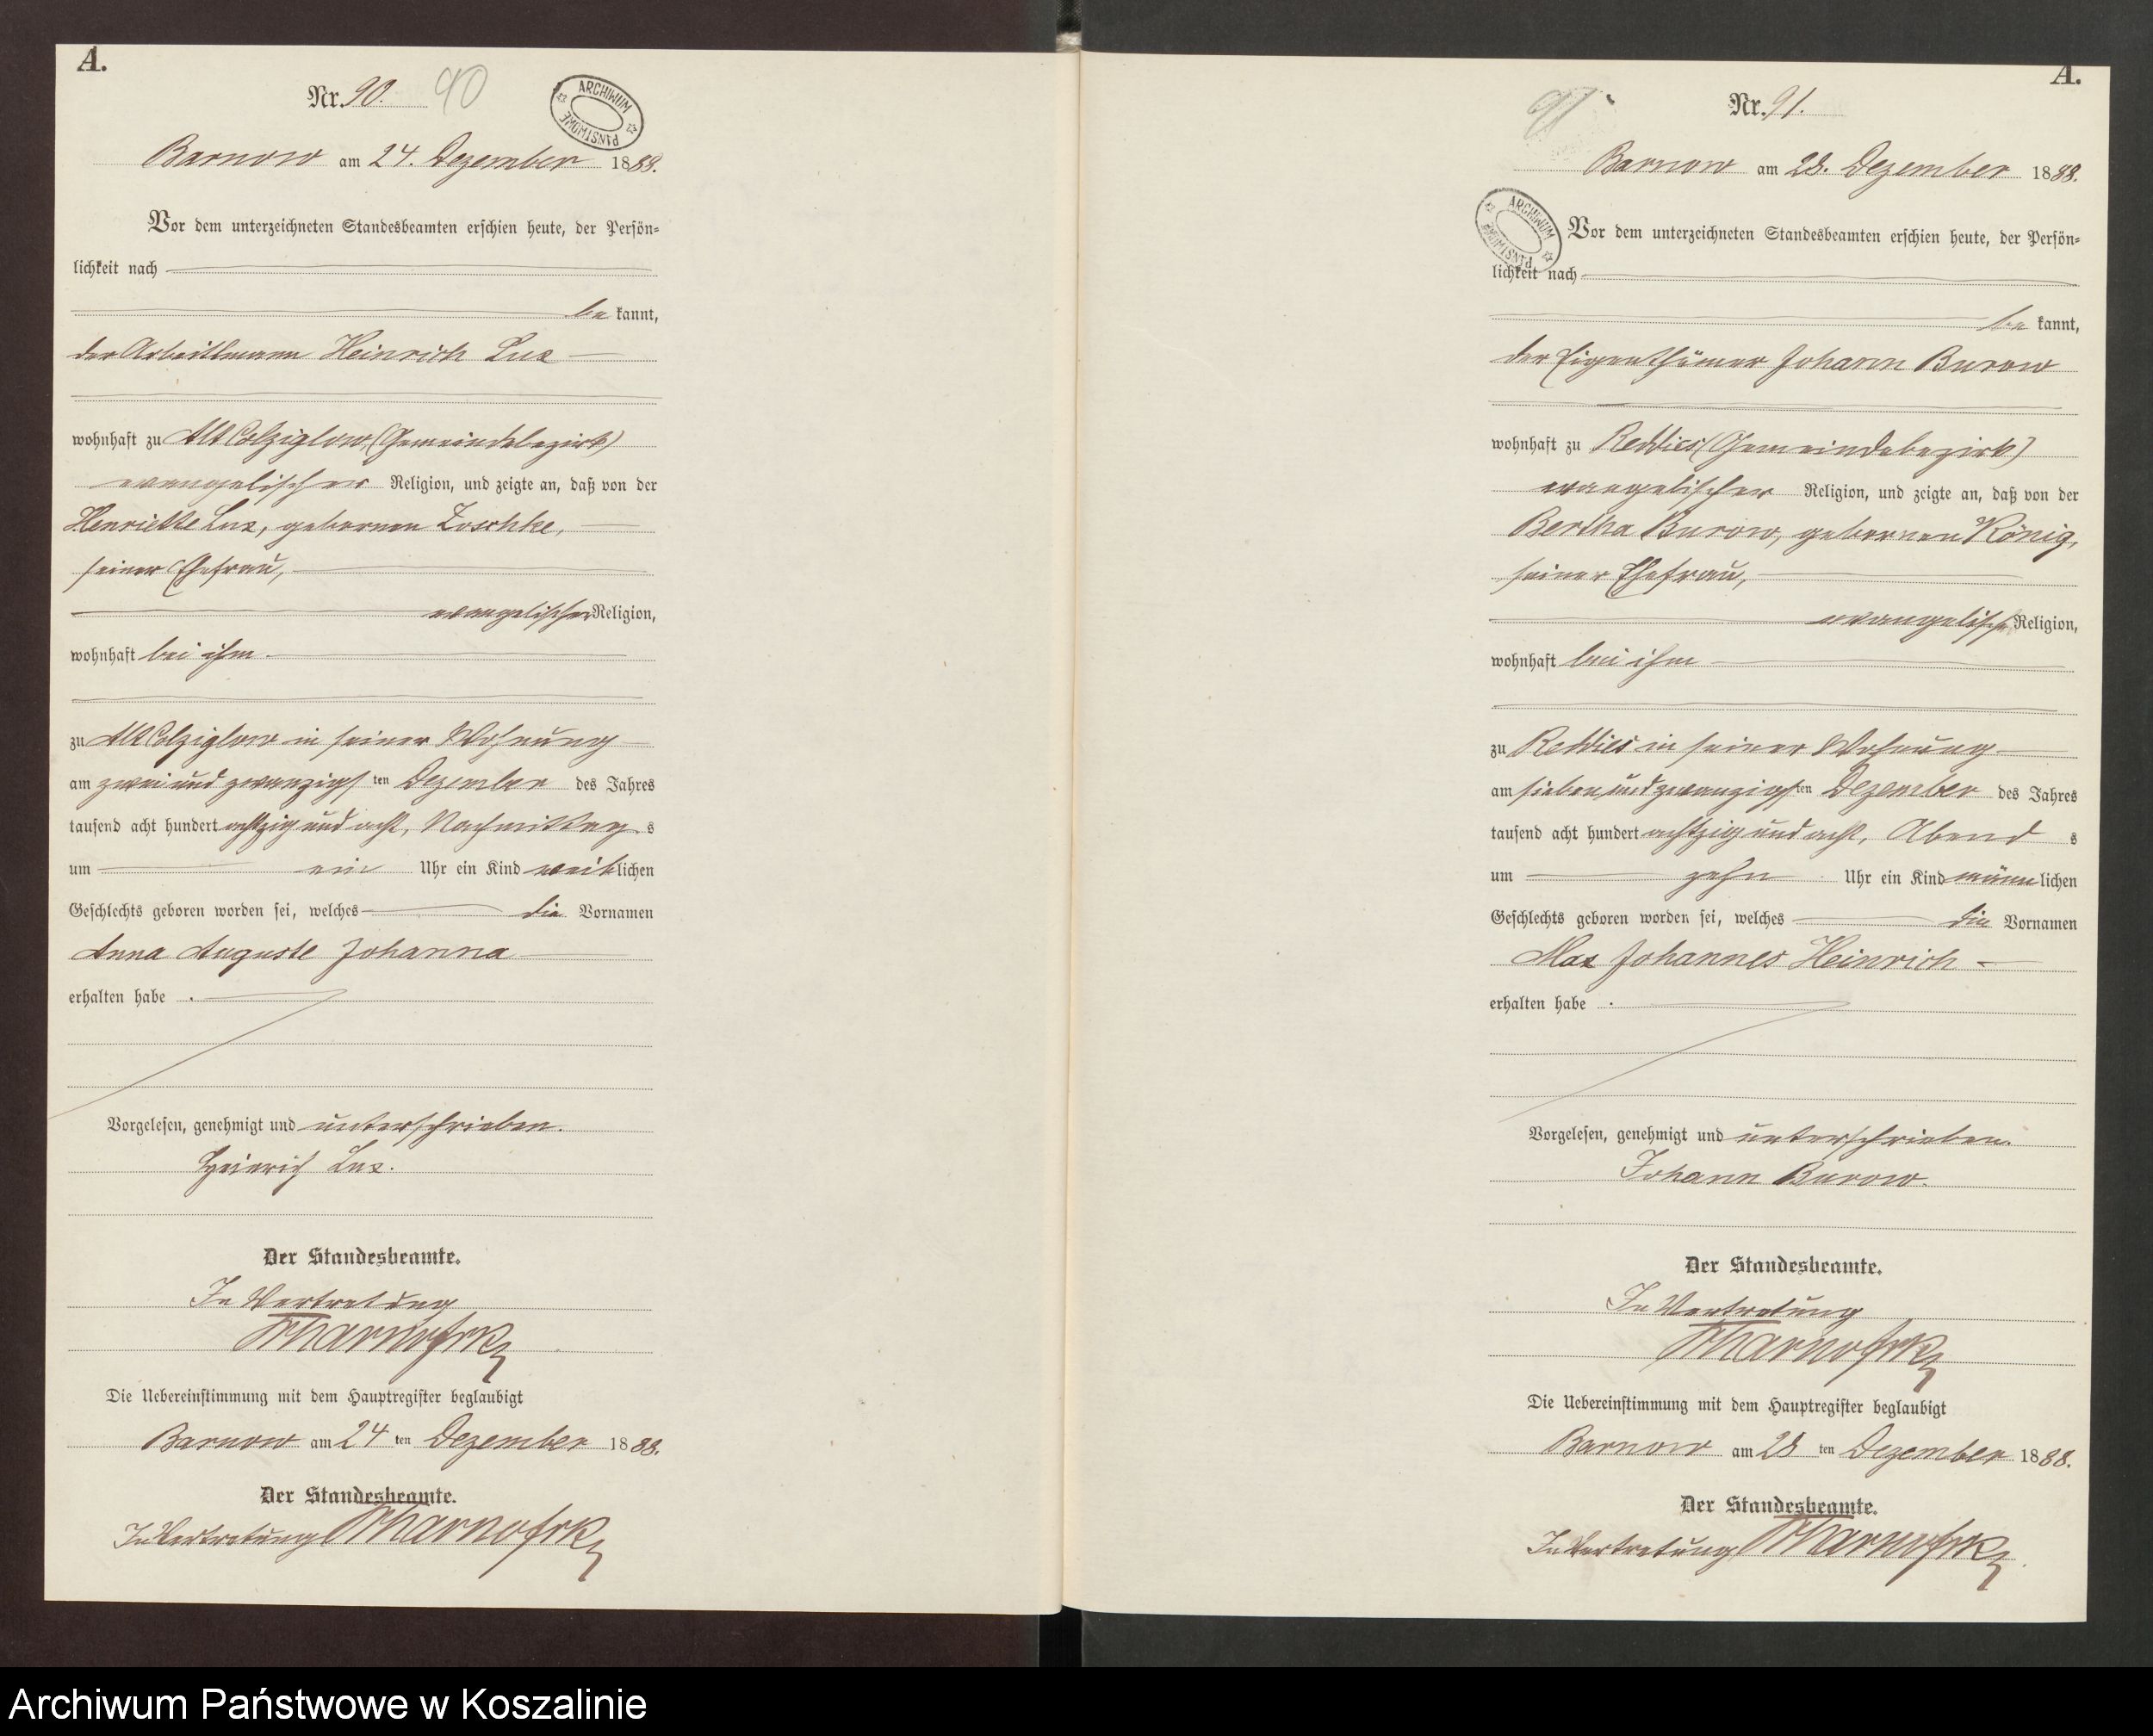 A.
Nr. 90. 90
ARCHIWUM PAŃSTWOWE
Barnow am 24. Dezember 1888.
Vor dem unterzeichneten Standesbeamten erschien heute, der Persön-
lichkeit nach
be kannt,
der Arbeitsmann Heinrich Lux
wohnhaft zu Alt Colziglow (Gemeindebezirk)
evangelischer Religion, und zeigte an, daß von der
Henriette Lux, geborenen Zoschke,
seiner Ehefrau,
evangelischer Religion,
wohnhaft bei ihm
zu Alt Colziglow in seiner Wohnung
am zwei und zwanzigsten Dezember des Jahres
tausend acht hundert achtzig und acht, Nachmittags
um ein Uhr ein Kind weiblichen
Geschlechts geboren worden sei, welches die Vornamen
Anna Auguste Johanna
erhalten habe .
Vorgelesen, genehmigt und unterschrieben.
Heinrich Lux.
Der Standesbeamte.
In Vertretung
Die Uebereinstimmung mit dem Hauptregister beglaubigt
Barnow am 24 ten Dezember 1888.
Der Standesbeamte.
In Vertretung
A.
91 Nr. 91.
Barnow am 28. Dezember 1888.
ARCHIWUM PAŃSTWOWE
Vor dem unterzeichneten Standesbeamten erschien heute, der Persön-
lichkeit nach
be kannt,
der Eigenthümer Johann Burow
wohnhaft zu Reddies (Gemeindebezirk)
evangelischer Religion, und zeigte an, daß von der
Bertha Burow, geborenen König,
seiner Ehefrau,
evangelischer Religion,
wohnhaft bei ihm
zu Reddies in seiner Wohnung
am sieben und zwanzigsten Dezember des Jahres
tausend acht hundert achtzig und acht, Abends
um zehn Uhr ein Kind männlichen
Geschlechts geboren worden sei, welches die Vornamen
Max Johannes Heinrich
erhalten habe .
Vorgelesen, genehmigt und unterschrieben.
Johann Burow.
Der Standesbeamte.
In Vertretung
Die Uebereinstimmung mit dem Hauptregister beglaubigt
Barnow am 28 ten Dezember 1888.
Der Standesbeamte.
In Vertretung
Archiwum Państwowe w Koszalinie